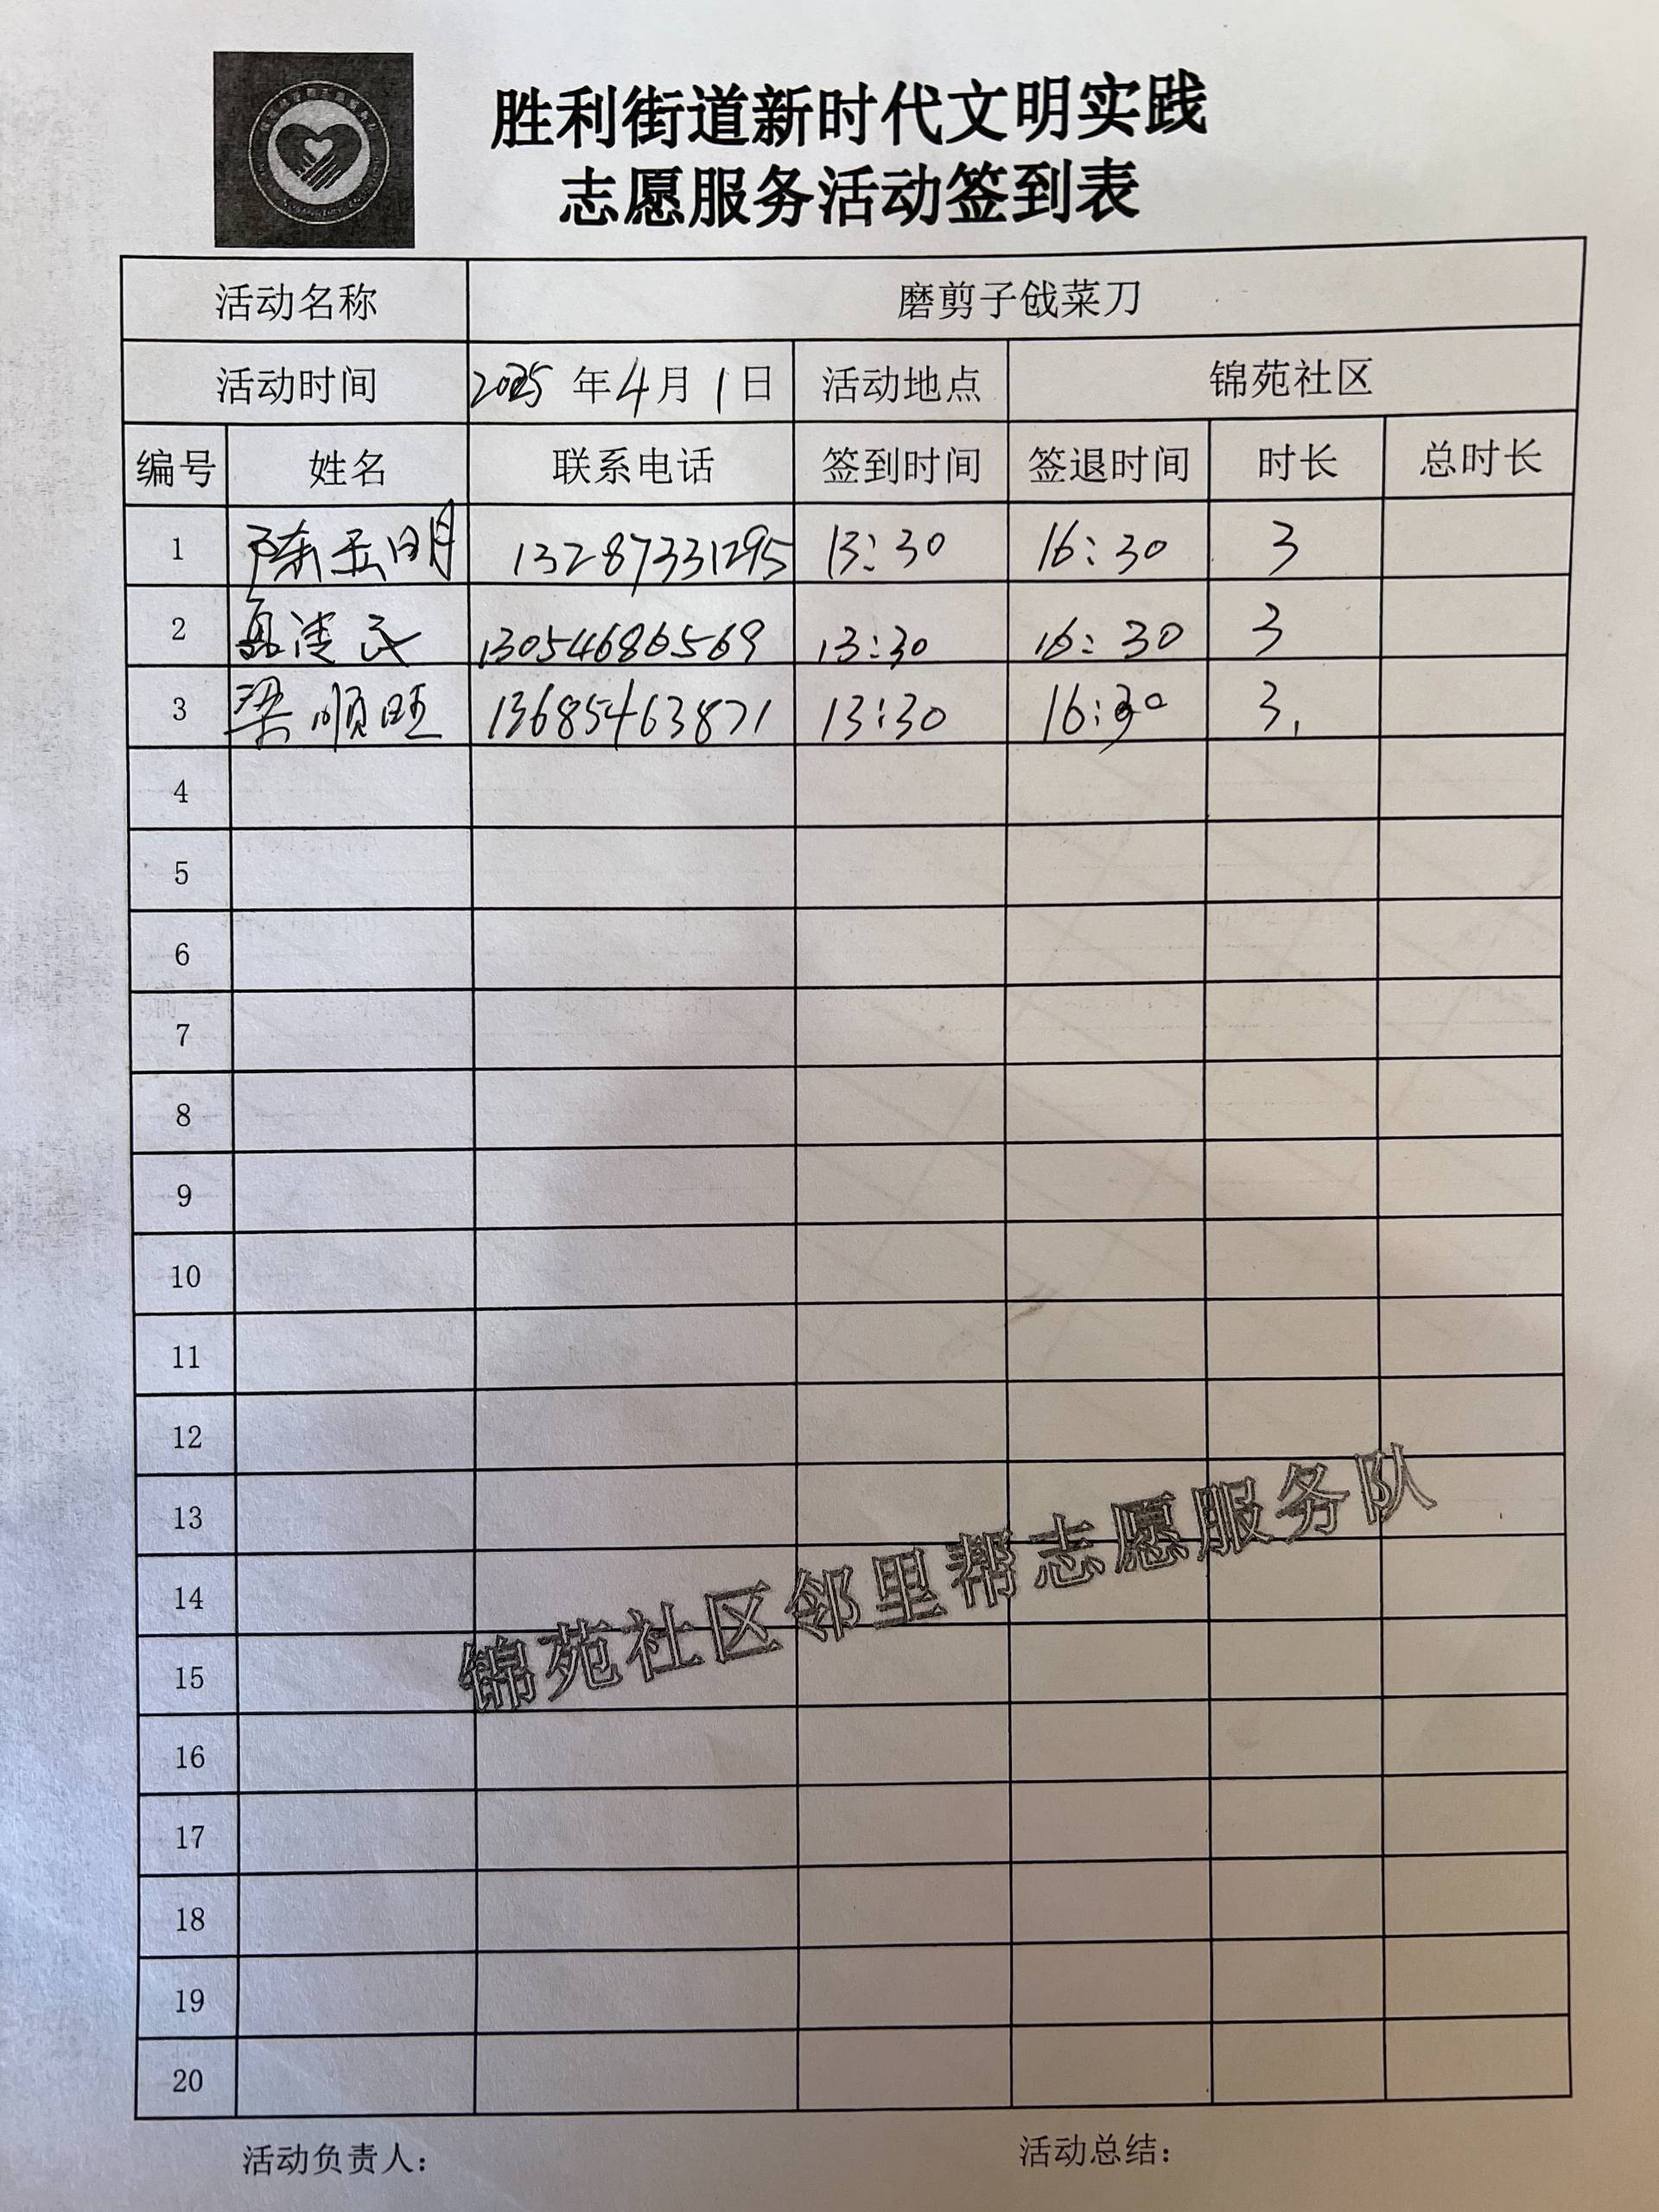 胜利街道新时代文明实践
志愿服务活动签到表
活动名称 磨剪子戗菜刀
活动时间 2025 年 4 月 1 日 活动地点 锦苑社区
编号 姓名 联系电话 签到时间 签退时间 时长 总时长
1 陈玉明 13287331295 13:30 16:30 3
2 13054686569 13:30 16:30 3
3 梁顺旺 13685463871 13:30 16:30 3
4
5
6
7
8
9
10
11
12
13
14
15
16
17
18
19
20
锦苑社区邻里帮志愿服务队
活动负责人： 活动总结：